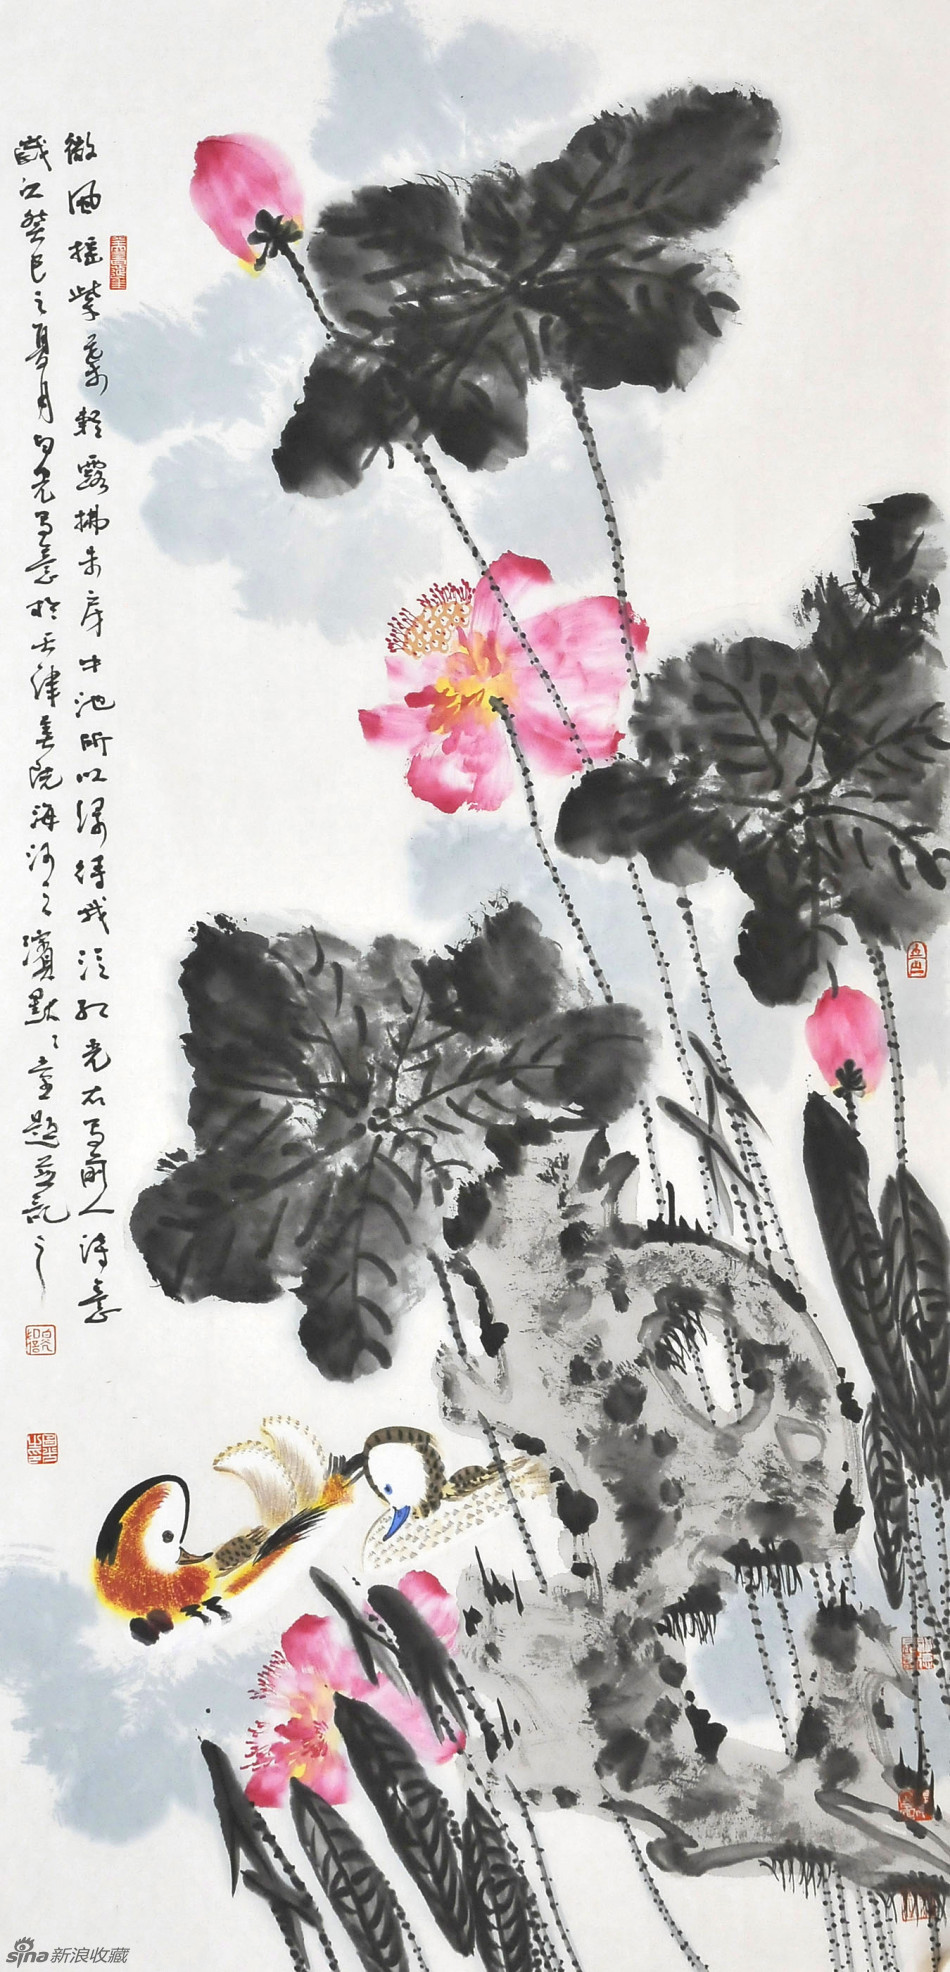 微風搖紫葉輕露拂朱房中池所以綠待我泛紅光右寫前人詩意
歲次癸巳之夏月白光寫意於天津美院海河之濱默默題並記之
sina新浪收藏